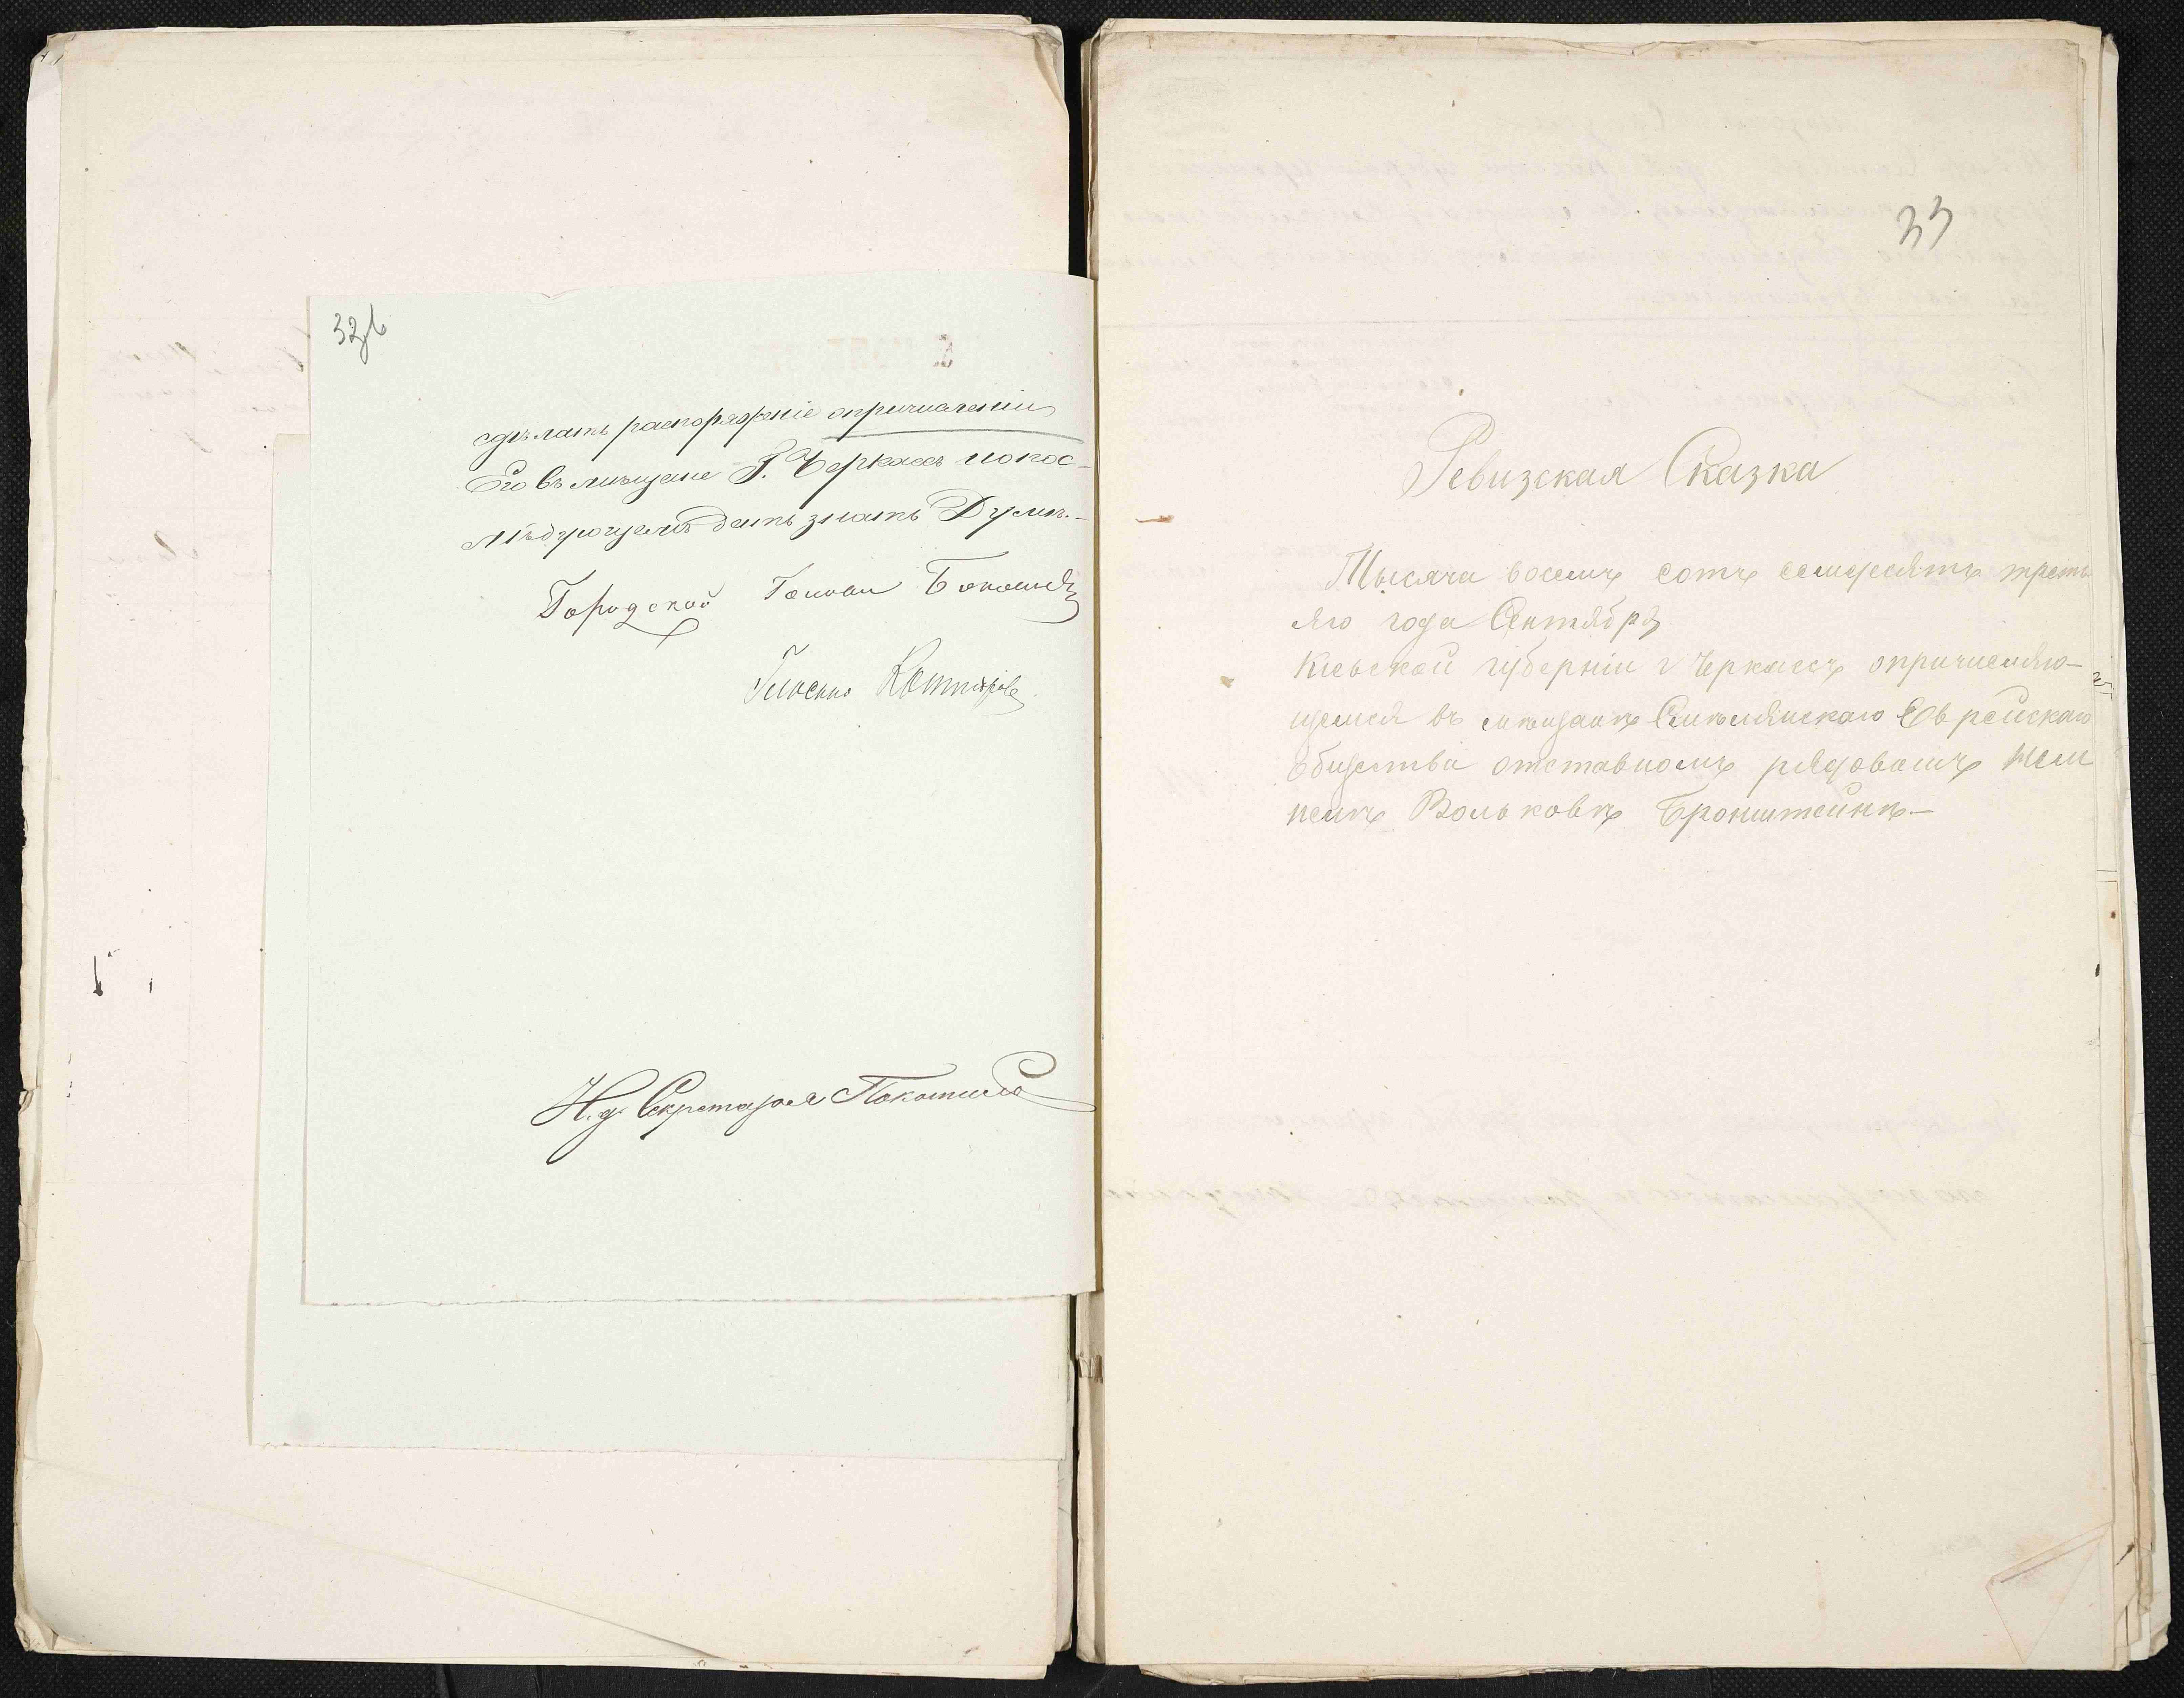 32об
сдѣлать распоряженіе опричисленіи
Его въ мѣщане Г. Черкассъ ипокос-
лѣдующемъ дать знать Думѣ.-
Городской Голова
Гласный
И. д. Секретаря Покотило
33
Ревизская Сказка
Тысяча восемъ сотъ семидесятъ треть
яго года Сентября
Кіевской губерніи г Черкассъ опричисляю-
щемся въ мѣщанѣ Смѣлянскаго Еврейскаго
Общества отставномъ рядовомъ
Вольковѣ Бронштейнѣ-